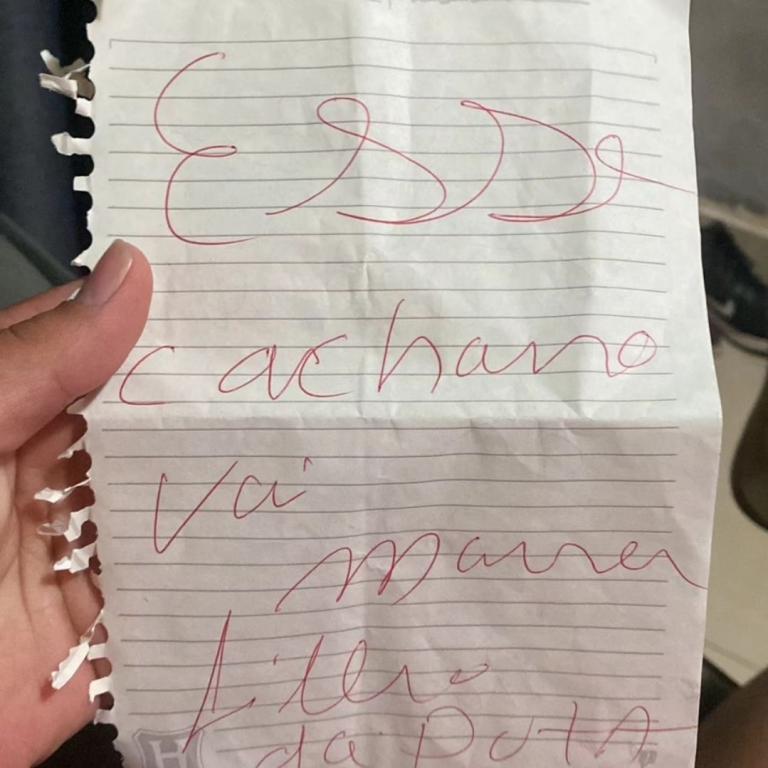 Esse
cachorro
Vai
morrer
filho
da puta
H